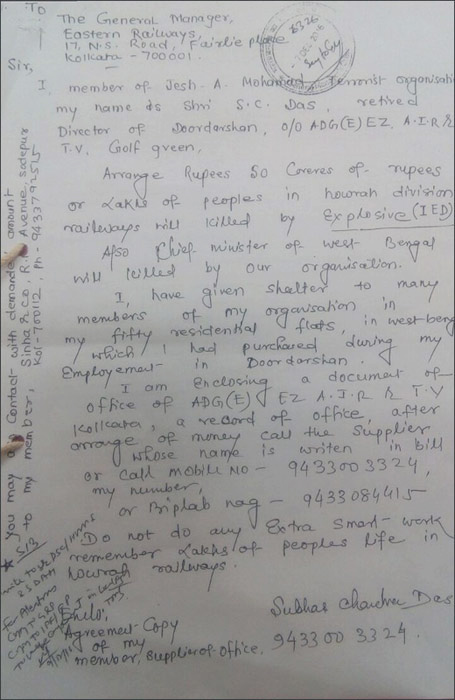 To
The General Manager,
Eastern Railways
17, N.S. Road, Fairlie place
Kolkata - 700001.
8326
Sir,
I, member of Jesh-A. Mohamad Terrorist organisation
my name is Shri S.C. Das, retired
Director of Doordarshan, O/O ADG(E) EZ. A.I.R &
T.V. Golf green,
Arrange Rupees 50 Coreres of rupees
or Lakhs of peoples in howrah division
railways will killed by Explosive (IED)
Also Chief minister of west Bengal
will killed by our organisation.
I, have given shelter to many
members of my organisation in
my fifty residential flats, in west beng
which I had purchased during my
Employement in Doordarshan.
I am Enclosing a document of
office of ADG(E) EZ A.I.R & T.V
Kolkata, a record of office, after
arrange of money call the Supplier
whose name is writen in bill
or call mobile NO - 9433003324,
my number,
or Biplab nag - 9433084415
Do not do any Extra Smart-work
remember Lakhs of peoples life in
howrah railways.
Subhas Chandra Das
9433003324.
Enclo,
Agreement-Copy
of my
member, Supplier of office.
You may also Contact with demande amount
to my member, Sinha & Co, R.N. Avenue, Sodepur
Kol-700112, Ph-9433792515